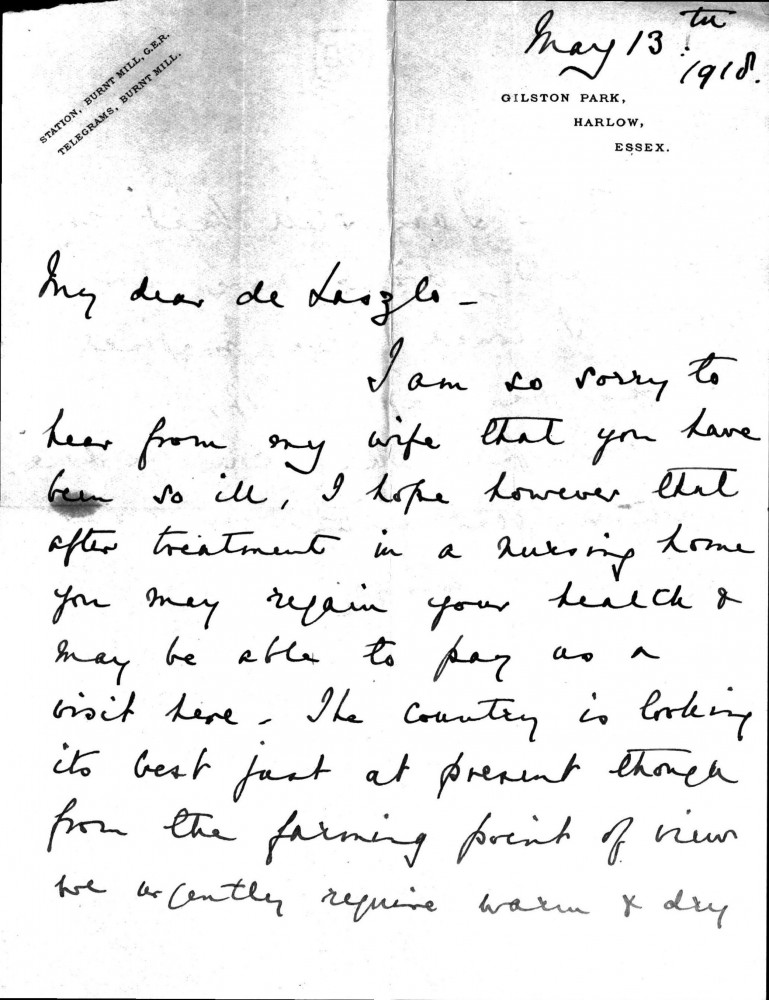 STATION, BURNT MILL, G.E.R.
TELEGRAMS, BURNT MILL.
May 13th
1918.
GILSTON PARK,
HARLOW,
ESSEX.
My dear de Laszlo -
I am so sorry to
hear from my wife that you have
been so ill, I hope however that
after treatment in a nursing home
you may regain your health &
may be able to pay us a
visit here - The country is looking
its best just at present though
from the farming point of view
we urgently require warm & dry